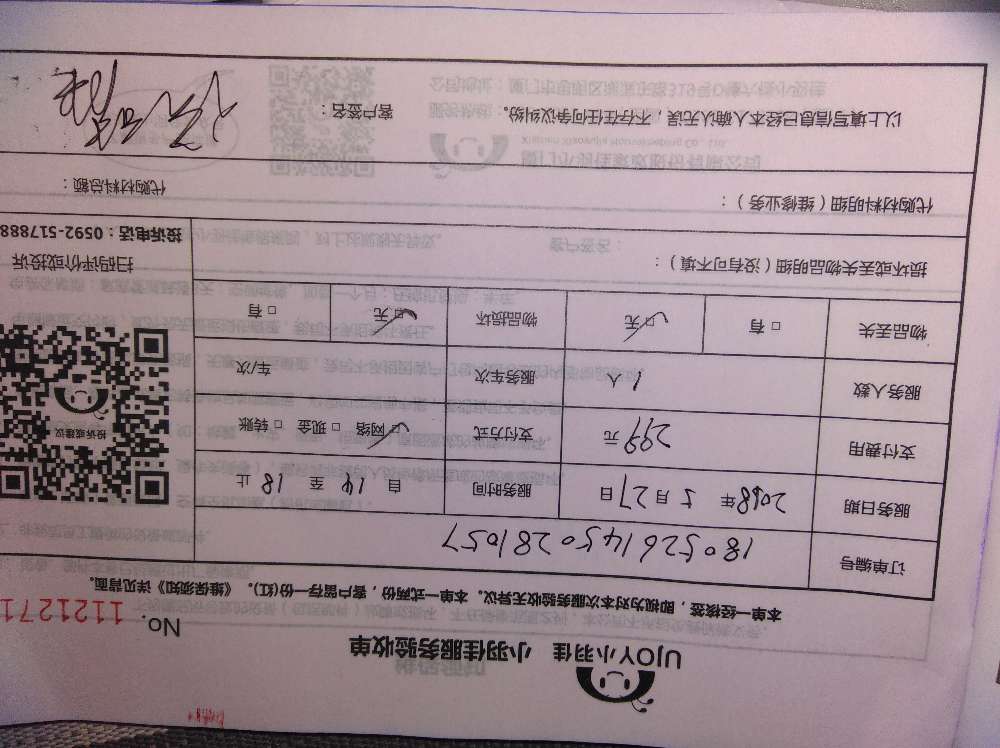 UJOY小羽佳 小羽佳服务验收单
No. 1121271
本单一经核签，即视为对本次服务验收无异议。本单一式两份，客户留存一份(红)。《维保须知》详见背面。
订单编号 180526145028 1057
服务日期 2018年 5月27日 服务时间 自 14 至 18 止
支付费用 299 元 支付方式 ☑ 网络 □ 现金 □ 转账
服务人数 1 人 服务车次 车/次
物品丢失 □ 有 ☑ 无 物品损坏 ☑ 无 □ 有
投诉或建议
扫码评价或投诉
投诉电话：0592-517888
损坏或丢失物品明细（没有可不填）：
代购材料明细（维修业务）： 代购材料总额：
以上填写信息已经本人确认无误，不存在任何争议纠纷。 客户签名：